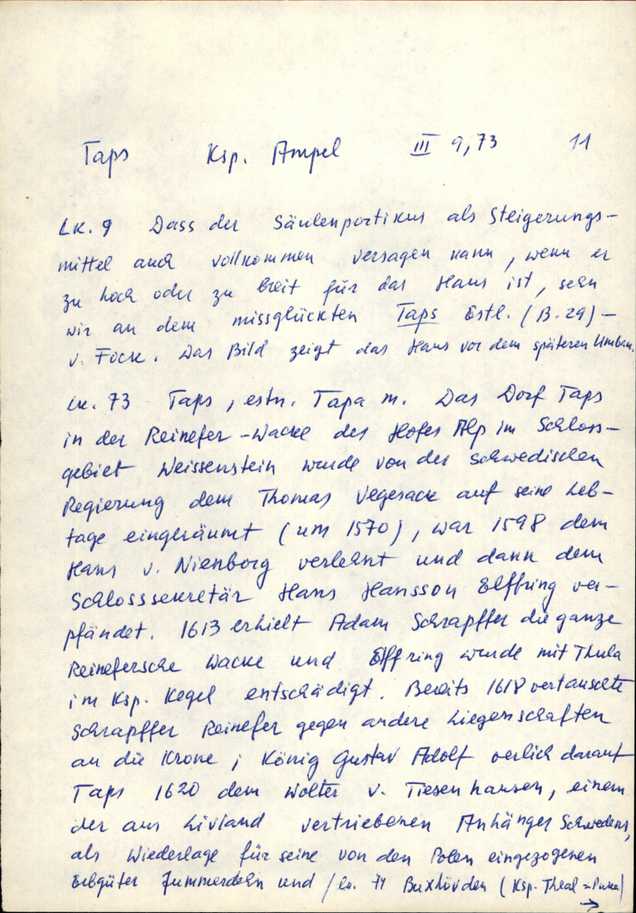 Taps Ksp. Ampel III 9,73 11
Lk. 9 Dass der Säulenportikus als Steigerungs-
mittel auch vollkommen versagen kann, wenn er
zu hoch oder zu breit für das Haus ist, sehn
wir an dem missglückten Taps Estl. (B. 29) –
v. Fock. Das Bild zeigt das Haus vor dem späteren Umbau.
Lk. 73 Taps, estn. Tapa m. Das Dorf Taps
in der Reinefer-Wacke des Hofes Alp im Schloss-
gebiet Weissenstein wurde von der schwedischen
Regierung dem Thomas Vegesack auf seine Leb-
tage eingeräumt (um 1570), war 1598 dem
Hans v. Nienborg verlehnt und dann dem
Schlosssekretär Hans Hansson Elffring ver-
pfändet. 1613 erhielt Adam Schrapffer die ganze
Reinefersche Wacke und Elffring wurde mit Thula
im Ksp. Kegel entschädigt. Bereits 1618 vertauschte
Schrapffer Reinefer gegen andere Liegenschaften
an die Krone; König Gustav Adolf verlieh darauf
Taps 1620 dem Wolter v. Tiesenhausen, einem
der aus Livland vertriebenen Anhänger Schwedens,
als Wiederlage für seine von den Polen eingezogenen
Erbgüter Jummerdehn und / Lk. 74 Buxhövden (Ksp. Theal =
→